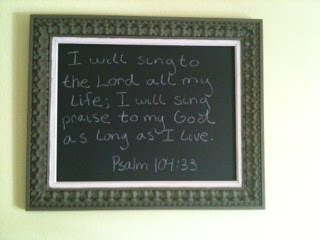 I will sing to
the Lord all my
life; I will sing
praise to my God
as long as I live.
Psalm 104:33